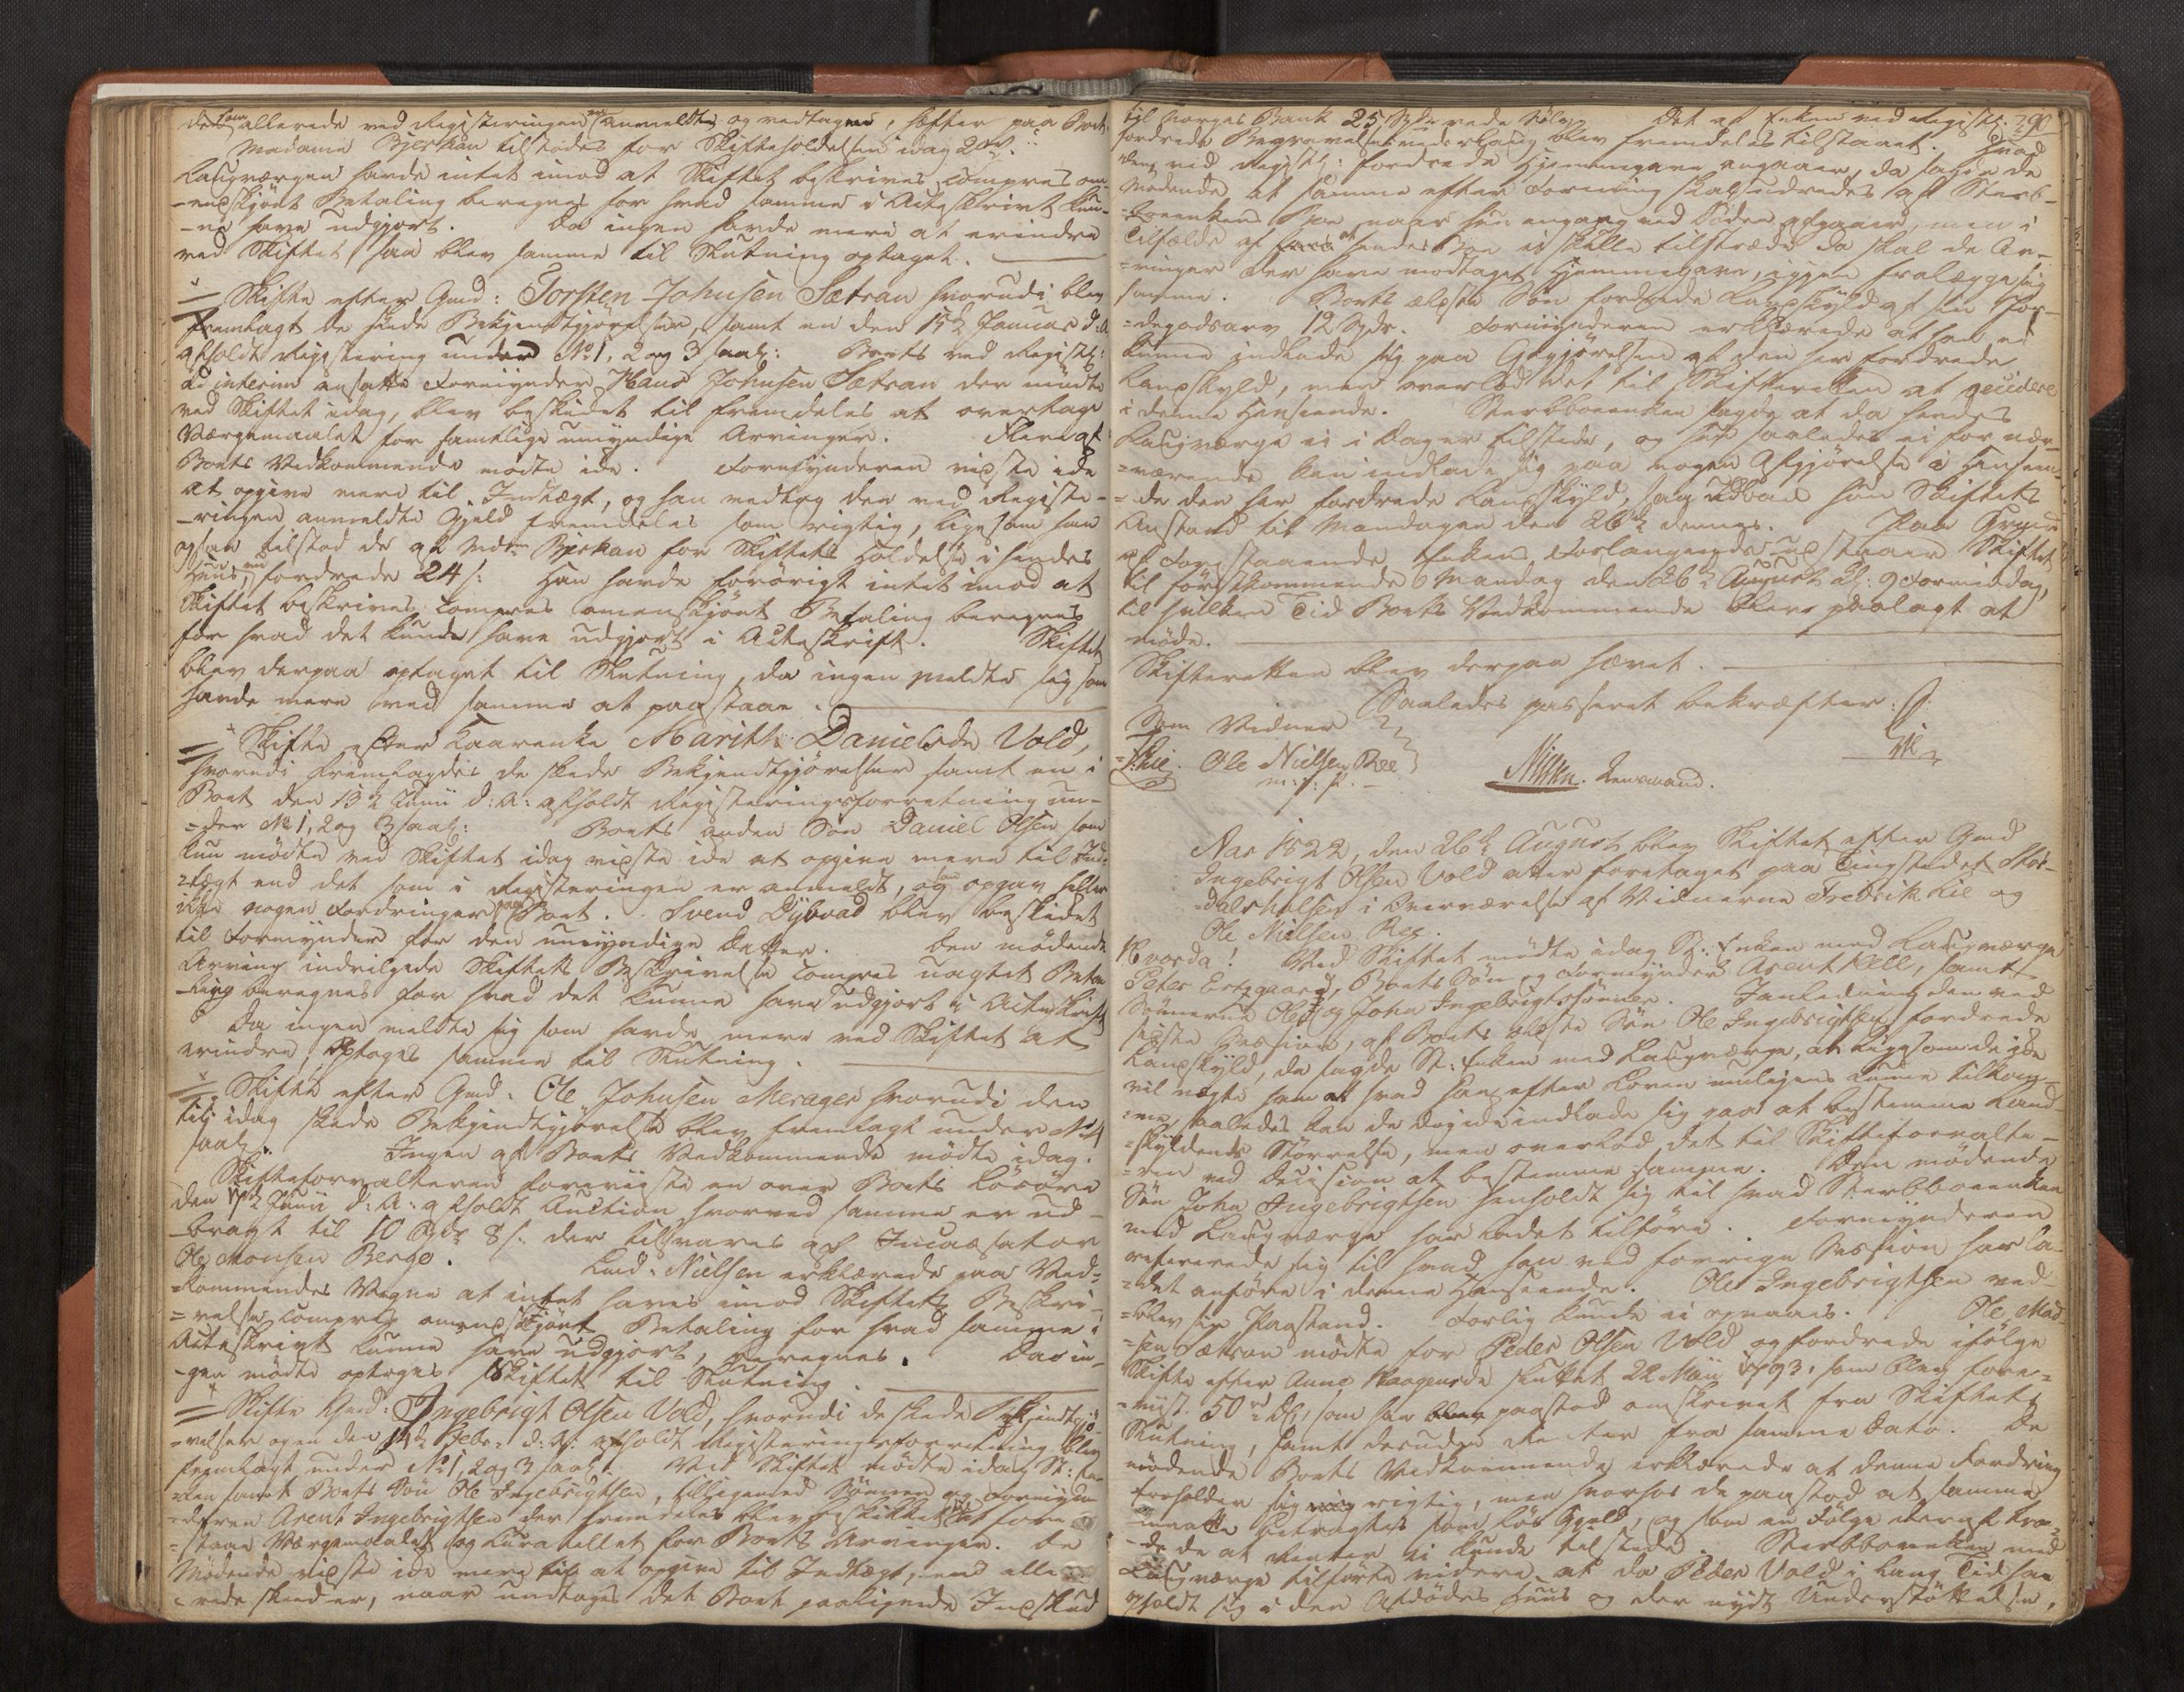 der som allerede ved Registeringen var anmeldte og vedtagne, hefter paa Boet.
Madame Bjerkan tilstodes for Skifteholdelsen idag 2
Laugværgen havde intet imod at Skiftet beskrives compres om-
-endskjønt Betaling beregnes for hvad samme i Acteskrivt kun-
-ne have udgjort. Da ingen havde mere at erindre
ved Skiftet saa blev samme til Slutning optaget.
Skifte efter Gmd: Torsten Johnsen Sætran hvorudi blev
fremlagt de skede Bekjendtgjørelser, samt en den 15de Januar d: A:
afholdt Registering under No 1, 2 og 3 saal: Boets ved Registr:
ad interim ansatte Formynder Hans Johnsen Sætran der mødte
ved Skiftet idag, blev beskikket til fremdeles at overtage
Værgemaalet for samtlige umyndige Arvinger. Flere af
Boets Vedkommende mødte ikke. Formynderen vidste ikke
at opgive mere til Indtægt, og han vedtog den ved Registe-
-ringen anmeldte Gjæld fremdeles som rigtig, ligesom han
ogsaa tilstod de af Mdm Bjerkan for Skiftets Holdelse i hendes
Huus fordrede 24 s: Han havde forøvrigt intet imod at
Skiftet beskrives compres omendskjønt Betaling beregnes
for hvad det kunde have udgjort i Acteskrift. Skiftet
blev derpaa optaget til Slutning, da ingen meldte sig som
havde mere ved samme at paastaae.
Skifte efter Kaarenke Marith Danielsdr Vold,
hvorudi fremlagdes de skede Bekjendtgjørelser samt en i
Boet den 13de Junii d: A: afholdt Registeringsforretning un-
=der No 1, 2 og 3 saal: Boets anden Søn Daniel Olsen som
kun mødte ved Skiftet idag vidste ikke at opgive mere til Ind-
=tægt end det som i Registeringen er anmeldt, og han opgav heller
ikke nogen Fordringer paa Boet. Svend Dybvad blev beskikket
til Formynder for den umyndige Datter. Den mødende
Arving indvilgede Skiftets Beskrivelse compres uagtet Beta-
-ling beregnes for hvad det kunne have udgjort i Acteskrift
Da ingen meldte sig som havde mere ved Skiftet at
erindre, optoges samme til Slutning.
Skifte efter Gmd: Ole Johnsen Merager hvorudi den
til idag skede Bekjendtgjørelse blev fremlagt under No 1
saal. Ingen af Boets Vedkommende mødte idag.
Skifteforvalteren foreviiste en over Boets Løsøre
den Junii d: A: afholdt Auction hvorved samme er ud-
-bragt til 10 Spdr 8 s: der tilsvares af Incassator
Ole Monsen Berge. Lmd: Nielsen erklærede paa Ved-
=kommendes Vegne at intet haves imod Skiftets Beskri-
=velse compres omendskjønt Betaling for hvad samme i
Acteskrivt kunne have udgjort, beregnes. Da in-
-gen mødte optoges Skiftet til Slutning
Skifte Gmd: Ingebrigt Olsen Vold, hvorudi de skede Bekjendtgjø-
=relser og en den 14de Febr: d: A: afholdt Registeringsforretning blev
fremlagt under No 1, 2 og 3 saal: Ved Skiftet mødte idag St: En-
=ken samt Boets Søn Ole Ingebrigtsen, tilligemed Sønnen og Formyn-
=deren Arent Ingebrigtsen der fremdeles blev beskikket til at fore-
=staae Værgemaalet og Curatellet for Boets Arvinger. De
Mødende vidste ikke mere til at opgive til Indtægt, end alle-
=rede skeed er, naar undtages det Boet paalignede Indskud
til Norges Bank 25 Spdr rede Sølv. Det af Enken ved Registr: 290
fordrede Begravelsesvederlaug blev fremdeles tilstaaet. Hvad
den ved Registr: fordrede Hjemmegave angaaer, da sagde de
Mødende at samme efter Formening skal udredes af Sterb-
=boeenkens Boe, naar hun engang ved Døden afgaaer, men i
Tilfælde af at hendes Boe ei skulle tilstræde da skal de Ar-
=vinger der have modtaget Hjemmegave, igjen fralægge sig
samme. Boets ældste Søn fordrede Landskyld af sin For-
=delsgodsarv 12 Spdr. Formynderen erklærede at han ei
kunne indlade sig paa Afgjørelsen af den her fordrede
Landskyld, men overlod det til Skifteretten at decidere
i denne Henseende. Sterbboeenken sagde at da hendes
Laugværge ei i Dag er tilstede, og hun saaledes ei for nær-
=værende kan indlade sig paa nogen Afgjørelse i Henseen-
=de den her fordrede Landskyld, saa udbad hun Skiftets
Anstand til Mandagen den 26de dennes. Paa Grund
af foranstaaende Enkens Forlangende udstaaer Skiftet
til førstkommende Mandag den 26de August Kl: 9 Formiddag,
til hvilken Tid Boets Vedkommende blev paalagt at
møde.
Skifteretten blev derpaa hævet.
Saaledes passeret bekræfter
Som Vidner
F: Lie. Ole Nielsen Ree
m: f: P.
Nissen. Lensmand.
Aar 1822, den 26de August blev Skiftet efter Gmd
Ingebrigt Olsen Vold atter foretaget paa Tingstedet Stør-
=dalshalsen i Overværelse af Vidnerne Fredrik Lie og
Ole Nielsen Ree.
Hvorda! Ved Skiftet mødte idag St: Enken med Laugværge
Peter Ertzgaard, Boets Søn og Formynder Arent Kell, samt
Sønnerne Ole og John Ingebrigtssønner. I Anledning den ved
sidste Session, af Boets ældste Søn Ole Ingebrigtsen fordrede
Landskyld, da sagde St: Enken med Laugværge, at ligesom de ikke
vil nægte ham at hvad han efter Loven muligens kunne tilkom-
=me, saaledes kan de dog ikke indlade sig paa at bestemme Land-
=skyldens Størrelse, men overlod det til Skifteforvalte-
=ren ved Decision at bestemme samme. Den mødende
Søn John Ingebrigtsen henholdt sig til hvad Sterbboeenken
med Laugværge har ladet tilføre. Formynderen
refererede sig til hvad han ved forrige Session har la-
=det anføre i denne Henseende. Ole Ingebrigtsen ved-
=blev sin Paastand. Forlig kunde ei opnaaes. Ole Mad-
=sen Sætran mødte for Peder Olsen Vold og fordrede ifølge
Skifte efter Anne Haagensdr sluttet 22 Maii 1793, som blev fore-
=viist. 50 rdl, som han paastod omskrevet fra Skiftets
Slutning, samt desuden Renter fra samme Dato. De
mødende Boets Vedkommende erklærede at denne Fordring
forholder sig rigtig, men hvorhos de paastod at samme
maatte betragtes som løs Gjæld, og som en Følge deraf troe-
=de de at Renter ei kunde tilstedes. Sterbboeenken med
Laugværge tilførte videre at da Peder Vold i lang Tid har
opholdt sig i den Afdødes Huus og der nydt Understøttelse,